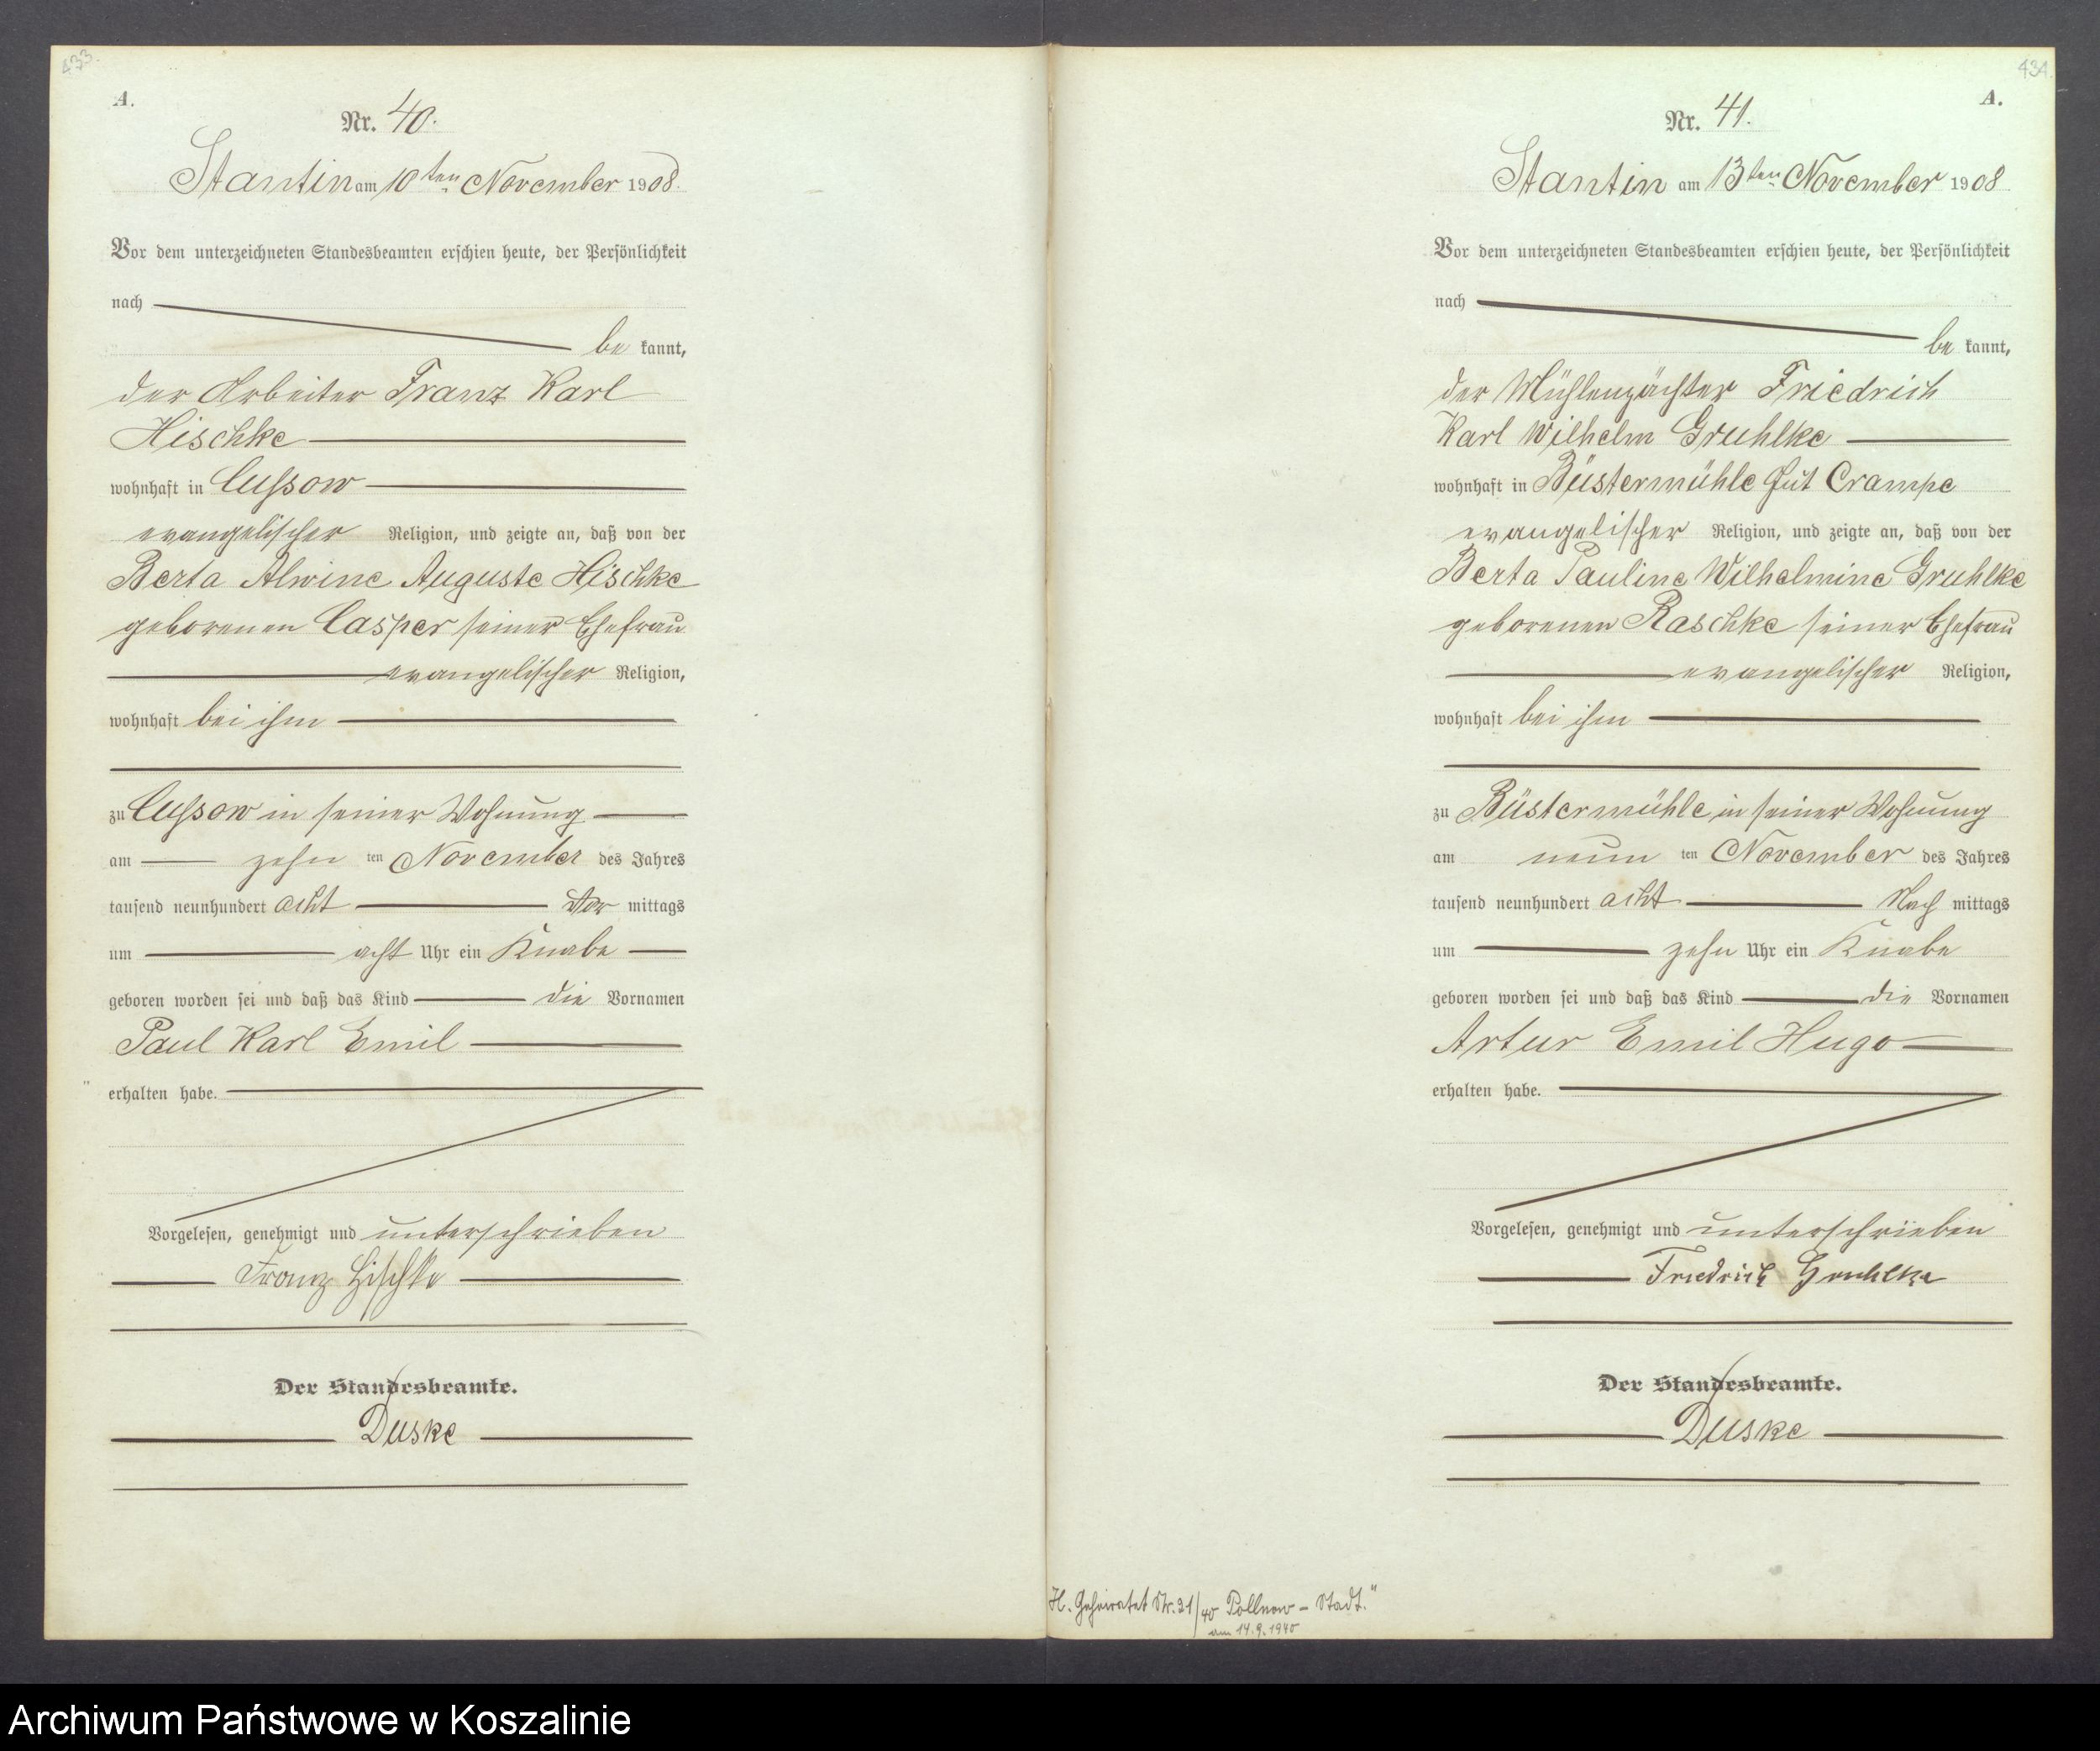 433.
A.
Nr. 40.
Stantin am 10ten November 1908.
Vor dem unterzeichneten Standesbeamten erschien heute, der Persönlichkeit
nach
be kannt,
der Arbeiter Franz Karl
Hischke
wohnhaft in Cussow
evangelischer Religion, und zeigte an, daß von der
Berta Alwine Auguste Hischke
geborenen Casper seiner Ehefrau
evangelischer Religion,
wohnhaft bei ihm
zu Cussow in seiner Wohnung
am zehn ten November des Jahres
tausend neunhundert acht Vor mittags
um acht Uhr ein Knabe
geboren worden sei und daß das Kind die Vornamen
Paul Karl Emil
erhalten habe.
Vorgelesen, genehmigt und unterschrieben
Franz Hischke
Der Standesbeamte.
Duske
434.
A.
Nr. 41.
Stantin am 13ten November 1908
Vor dem unterzeichneten Standesbeamten erschien heute, der Persönlichkeit
nach
be kannt,
der Mühlenpächter Friedrich
Karl Wilhelm Gruhlke
wohnhaft in Büstermühle Gut Crampe
evangelischer Religion, und zeigte an, daß von der
Berta Pauline Wilhelmine Gruhlke
geborenen Raschke seiner Ehefrau
evangelischer Religion,
wohnhaft bei ihm
zu Büstermühle in seiner Wohnung
am neun ten November des Jahres
tausend neunhundert acht Nach mittags
um zehn Uhr ein Knabe
geboren worden sei und daß das Kind die Vornamen
Artur Emil Hugo
erhalten habe.
Vorgelesen, genehmigt und unterschrieben
Friedrich Gruhlke
Der Standesbeamte.
Duske
H. Geheiratet Nr. 31/40 Pollnow - Stadt."
am 14.9.1940
Archiwum Państwowe w Koszalinie